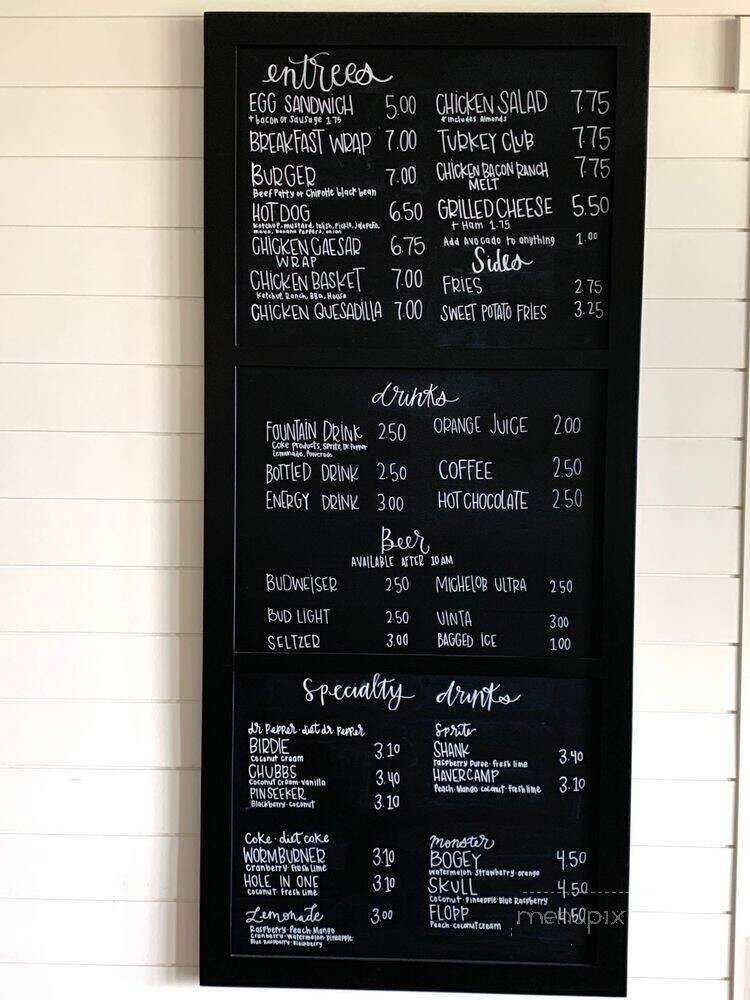 entrees
EGG SANDWICH 5.00
+ bacon or sausage 1.75
BREAKFAST WRAP 7.00
BURGER 7.00
Beef Patty or Chipotle black bean
HOT DOG 6.50
Ketchup, mustard, relish, Pickle, Jalapeño,
mayo, banana Peppers, onion
CHICKEN CAESAR 6.75
WRAP
CHICKEN BASKET 7.00
Ketchup, Ranch, BBQ, House
CHICKEN QUESADILLA 7.00
CHICKEN SALAD 7.75
* includes Almonds
TURKEY CLUB 7.75
CHICKEN BACON RANCH 7.75
MELT
GRILLED CHEESE 5.50
+ Ham 1.75
Add Avocado to anything 1.00
Sides
FRIES 2.75
SWEET POTATO FRIES 3.25
drinks
FOUNTAIN DRINK 2.50
Coke Products, Sprite, Dr. Pepper
Lemonade, Powerade
BOTTLED DRINK 2.50
ENERGY DRINK 3.00
ORANGE JUICE 2.00
COFFEE 2.50
HOT CHOCOLATE 2.50
Beer
AVAILABLE AFTER 10AM
BUDWEISER 2.50
BUD LIGHT 2.50
SELTZER 3.00
MICHELOB ULTRA 2.50
UINTA 3.00
BAGGED ICE 1.00
Specialty drinks
dr Pepper · diet dr Pepper
BIRDIE 3.10
Coconut Cream
CHUBBS 3.40
Coconut Cream · Vanilla
PINSEEKER 3.10
Blackberry · Coconut
Coke · diet coke
WORMBURNER 3.10
Cranberry · Fresh Lime
HOLE IN ONE 3.10
Coconut · Fresh Lime
Lemonade 3.00
Raspberry · Peach · Mango
Cranberry · Watermelon · Pineapple
Blue Raspberry · Blackberry
Sprite
SHANK 3.40
Raspberry Puree · Fresh lime
HAVERCAMP 3.10
Peach · Mango · Coconut · Fresh lime
monster
BOGEY 4.50
Watermelon · Strawberry · orange
SKULL 4.50
Coconut · Pineapple · Blue Raspberry
FLOPP 4.50
Peach · Coconut Cream
menupix